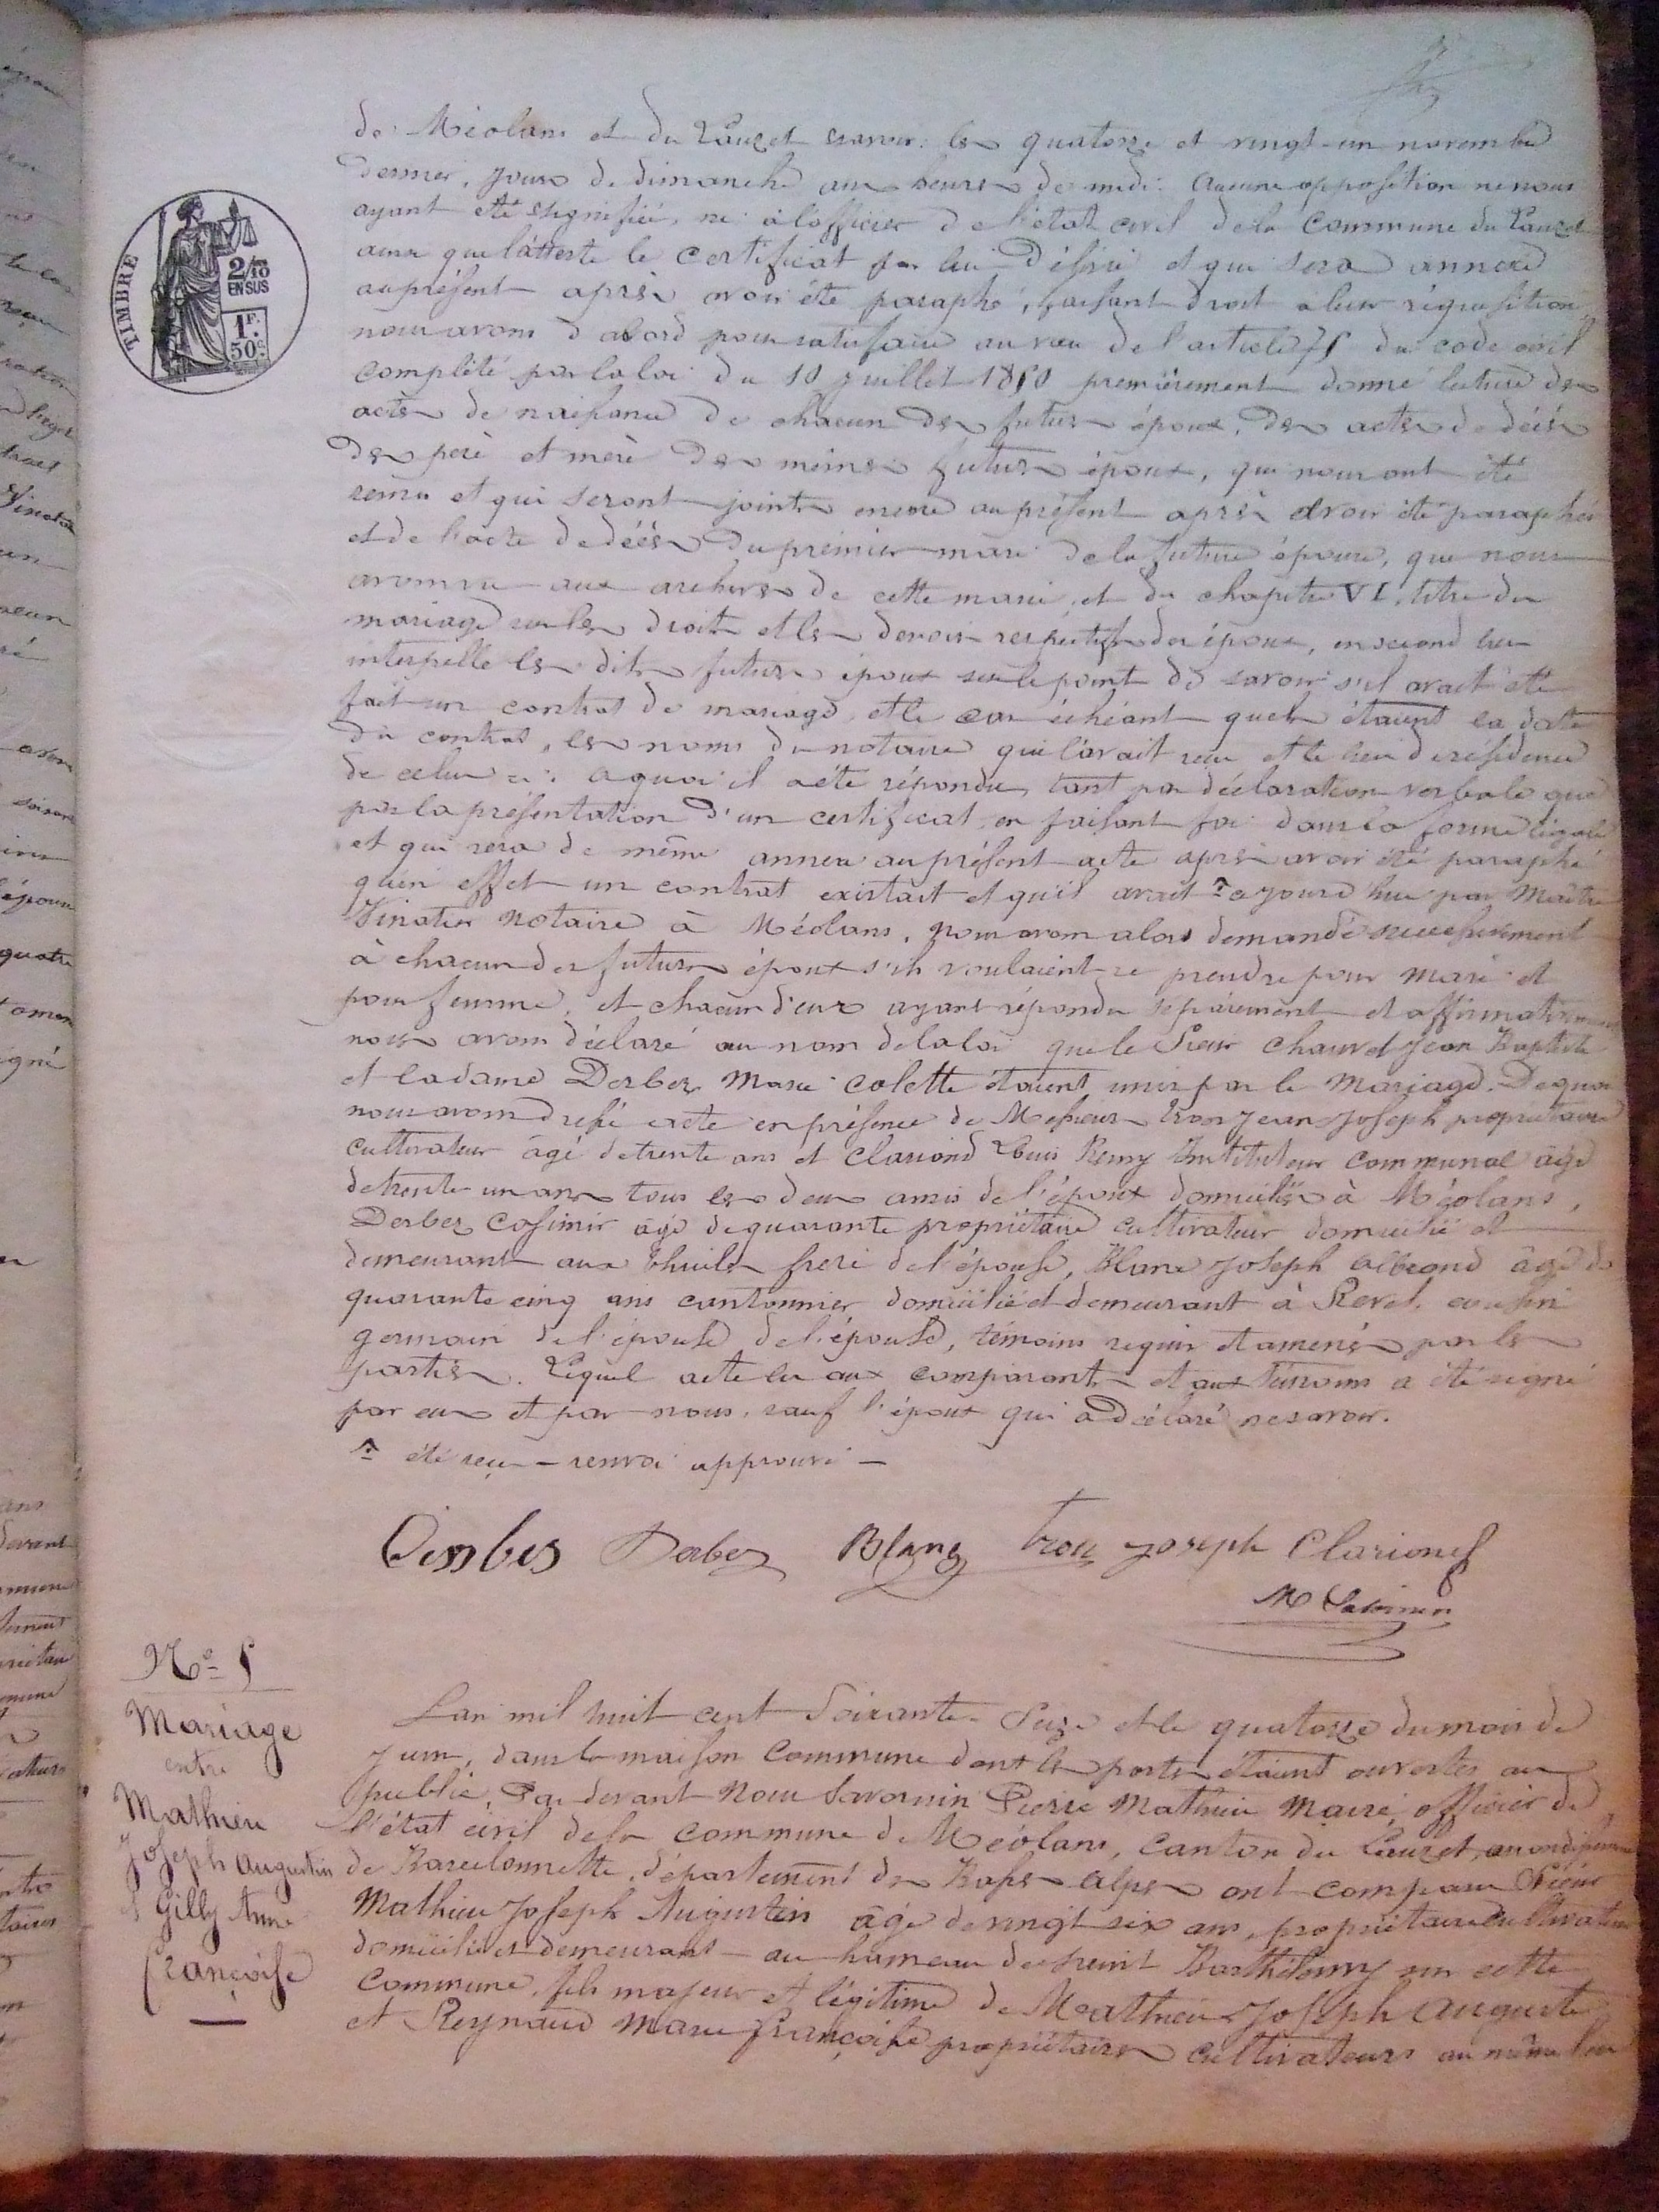 de Méolans et du Lauzet savoir: les quatorze et vingt-un novembre
dernier, jours de dimanche aux heures de midi. Aucune opposition ne nous
ayant été signifiée, ni à l'officier de l'état civil de la Commune du Lauzet
ainsi que l'atteste le certificat par lui délivré et qui sera annexé
au présent après avoir été paraphé, faisant droit à leur réquisition
nous avons d'abord pour satisfaire au vœu de l'article 75 du code civil
complété par la loi du 10 juillet 1850 premièrement donné lecture des
actes de naissance de chacun des futurs époux, des actes de décès
des père et mère des mêmes futurs époux, qui nous ont été
remis et qui seront joints encore au présent après avoir été paraphés
et de l'acte de décès du premier mari de la future épouse, que nous
avons vu aux archives de cette mairie, et du chapitre VI, titre du
mariage sur les droits et les devoirs respectifs des époux, en second lieu
interpellé les dits futurs époux sur le point de savoir s'il avait été
fait un contrat de mariage, et le cas échéant quels étaient la date
du contrat, les noms du notaire qui l'avait reçu et le lieu de résidence
de celui-ci: a quoi il a été répondu, tant par déclaration verbale que
par la présentation d'un certificat en faisant foi dans la forme légale
et qui sera de même annexé au présent acte après avoir été paraphé
qu'en effet un contrat existait et qu'il avait ajourd'hui par Maître
Vinatier Notaire à Méolans, nous avons alors demandé successivement
à chacun des futurs époux s'ils voulaient se prendre pour mari et
pour femme, et chacun d'eux ayant répondu séparément et affirmativement
nous avons déclaré au nom de la loi que le Sieur Chauvet Jean Baptiste
et la dame Derbez Marie Colette étaient unis par le Mariage. De quoi
nous avons dressé acte en présence de Messieurs Tron Jean Joseph propriétaire
cultivateur âgé de trente ans et Clariond Louis Remy Instituteur communal âgé
de trente un ans tous les deux amis de l'époux domiciliés à Méolans,
Derbez Casimir âgé de quarante propriétaire cultivateur domicilié et
demeurant aux Thuiles frère de l'épouse, Blanc Joseph Albrand âgé de
quarante cinq ans cantonnier domicilié et demeurant à Revel, cousin
germain de l'épouse de l'épouse, témoins requis et amenés par les
parties. Lequel acte lu aux comparants et aux témoins a été signé
par eux et par nous, sauf l'époux qui a déclaré ne savoir.
été reçu — renvoi approuvé —
TIMBRE
2/10
EN SUS
1F.
50C.
Derbes Derbez Blanc Tron Joseph Clariond
M Savornin
No 5
Mariage
entre
Mathieu
Joseph Augustin
et Gilly Anne
Françoise
L'an mil huit cent soixante-seize et le quatorze du mois de
juin, dans la maison commune dont les portes étaient ouvertes au
public, Par devant Nous Savornin Pierre Mathieu Maire, officier de
l'état civil de la commune de Méolans, canton du Lauzet, arrondissement
de Barcelonnette, département des Basses Alpes ont comparu Sieur
Mathieu Joseph Augustin âgé de vingt six ans, propriétaire Cultivateur
domicilié et demeurant au hameau de saint Barthélemy en cette
Commune, fils majeur et légitime de Mathieu Joseph Auguste
et Reynaud Marie françoise propriétaires cultivateurs au même lieu